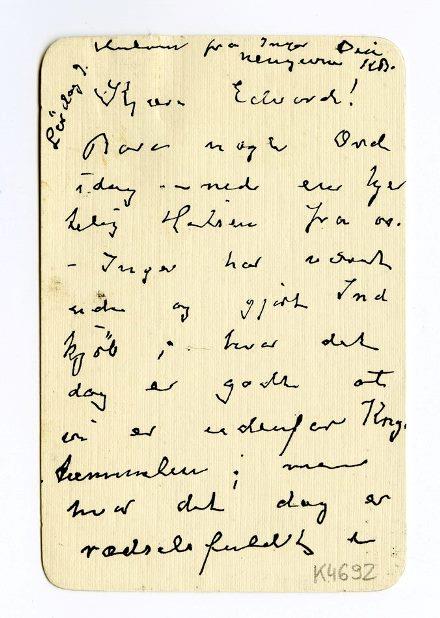 fra Inger Din
KB.
Lördag
Kjære Edvard!
Bare nogen Ord
idag med en kjær
telig Hilsen fra os.
– Inger har været
ude og gjort Ind
kjöb; hvor det
dog er godt at
vi er udenfor Krig
tummelen; men
hvor det dog er
rædselsfuldt i
K4692